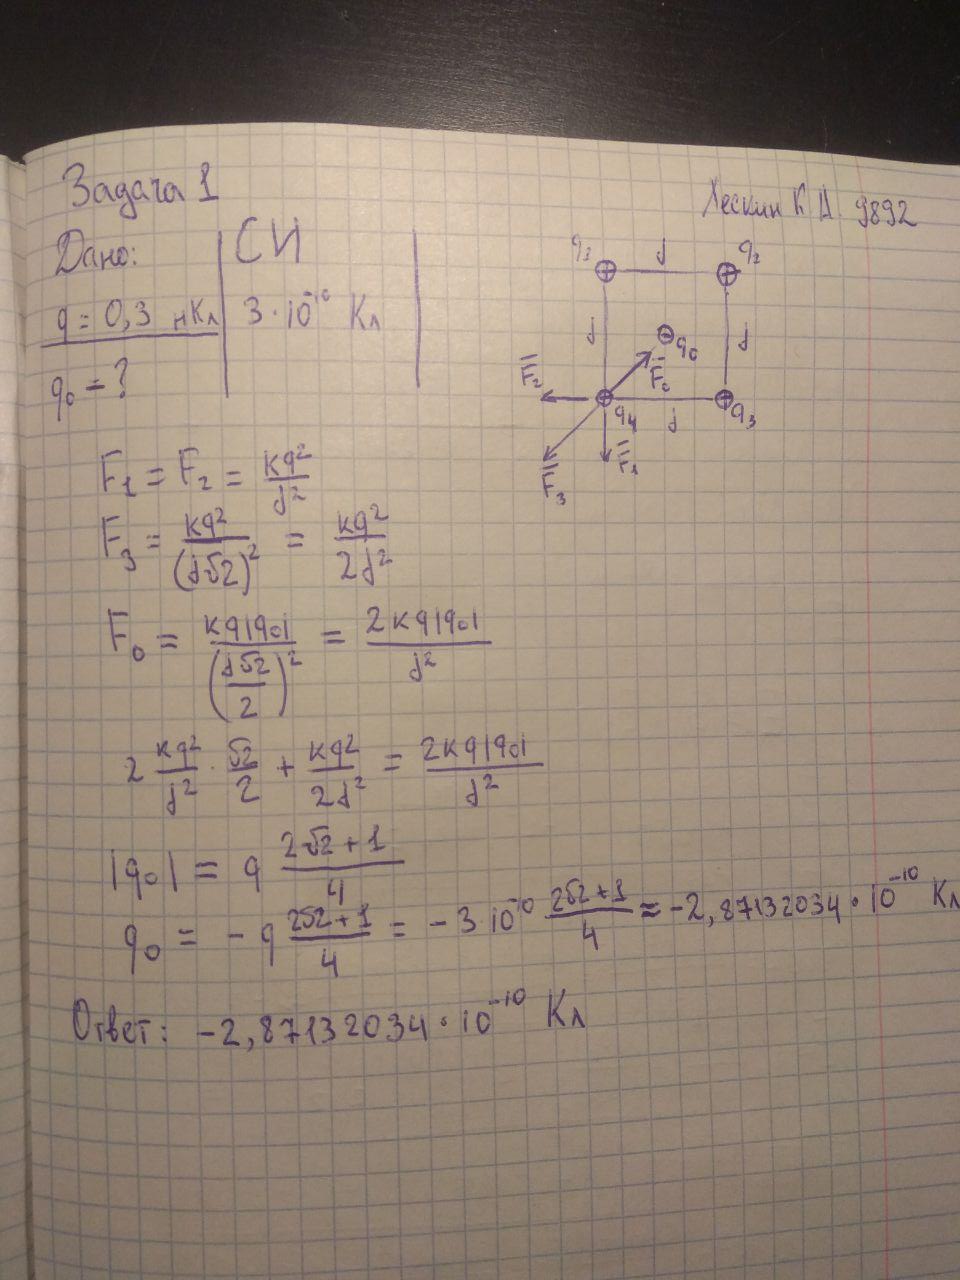 Задача 1
Лескин К А. 9892
Дано:
СИ
q = 0,3 нКл
3 · 10⁻¹⁰ Кл
q₀ - ?
q₁ d q₂
d q₀ d
F̅₂ F̅₀
q₄ d q₃
F̅₁
F̅₃
F₁ = F₂ = kq²/d²
F₃ = kq²/(d√2)² = kq²/2d²
F₀ = kq|q₀|/(d√2/2)² = 2kq|q₀|/d²
2 kq²/d² · √2/2 + kq²/2d² = 2kq|q₀|/d²
|q₀| = q (2√2 + 1)/4
q₀ = - q (2√2 + 1)/4 = - 3 · 10⁻¹⁰ (2√2 + 1)/4 ≈ -2,87132034 · 10⁻¹⁰ Кл
Ответ: -2,87132034 · 10⁻¹⁰ Кл